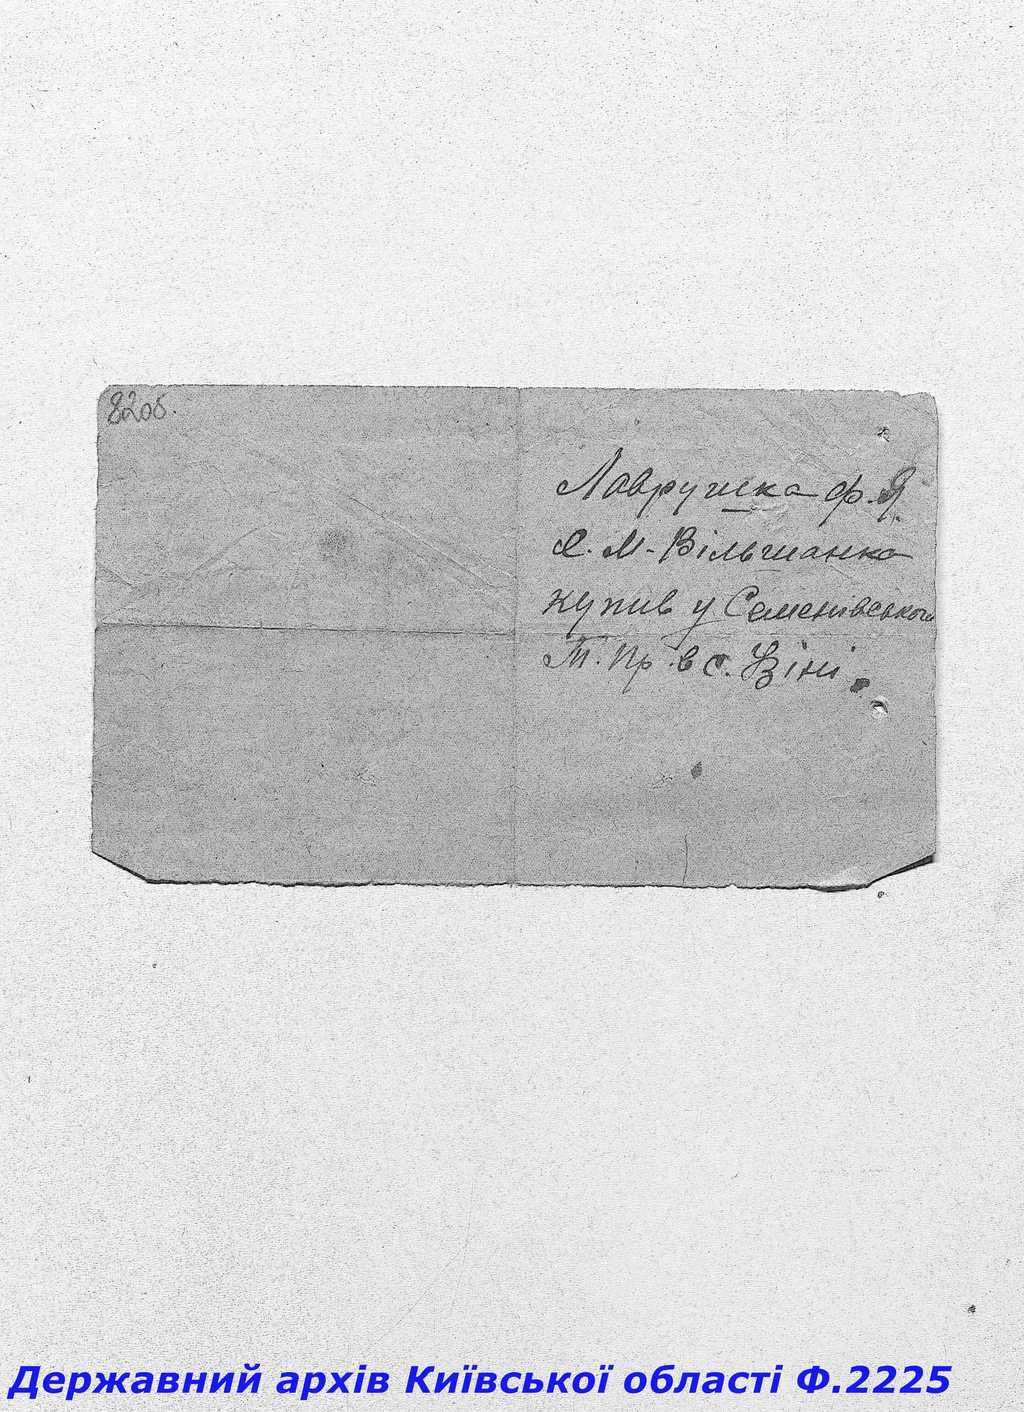 82об.
Лаврушка Ф. Я.
С. М-Вільшанка
купив у Семенівського
М. Пр. в с.
Державний архів Київської області Ф.2225